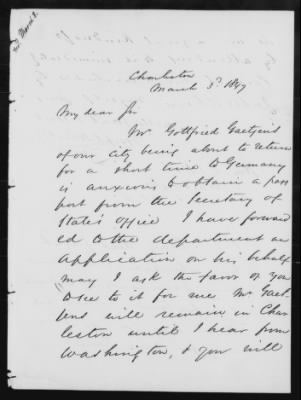 Recd March 8.
Charleston
March 3d 1849
My dear Sir
Mr Gottfried Gaetjens
of our city being about to return
for a short time to Germany
is anxious to obtain a pass
port from the Secretary of
State's office I have forward
ed to the department an
application on his behalf
may I ask the favor of you
to see to it for me Mr Gaet
jens will remain in Char
leston until I hear from
Washington, & you will